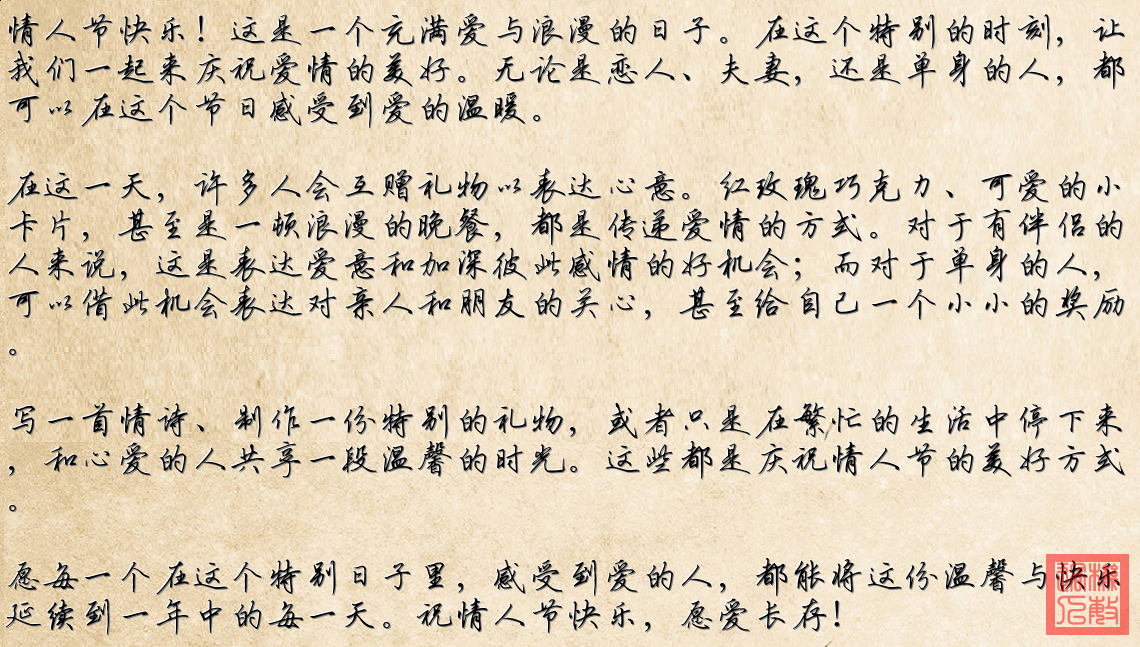 情人节快乐！这是一个充满爱与浪漫的日子。在这个特别的时刻，让
我们一起来庆祝爱情的美好。无论是恋人、夫妻，还是单身的人，都
可以在这个节日感受到爱的温暖。
在这一天，许多人会互赠礼物以表达心意。红玫瑰巧克力、可爱的小
卡片，甚至是一顿浪漫的晚餐，都是传递爱情的方式。对于有伴侣的
人来说，这是表达爱意和加深彼此感情的好机会；而对于单身的人，
可以借此机会表达对亲人和朋友的关心，甚至给自己一个小小的奖励
。
写一首情诗、制作一份特别的礼物，或者只是在繁忙的生活中停下来
，和心爱的人共享一段温馨的时光。这些都是庆祝情人节的美好方式
。
愿每一个在这个特别日子里，感受到爱的人，都能将这份温馨与快乐
延续到一年中的每一天。祝情人节快乐，愿爱长存！